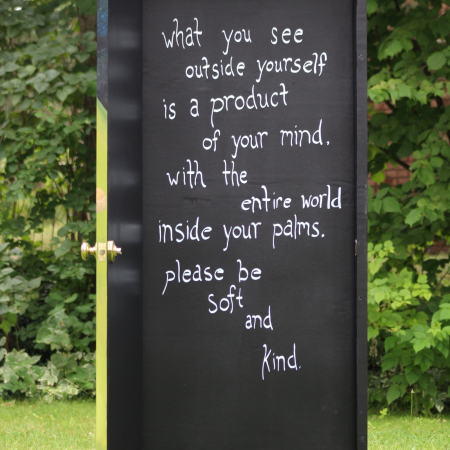 what you see
outside yourself
is a product
of your mind.
with the
entire world
inside your palms.
please be
soft
and
kind.